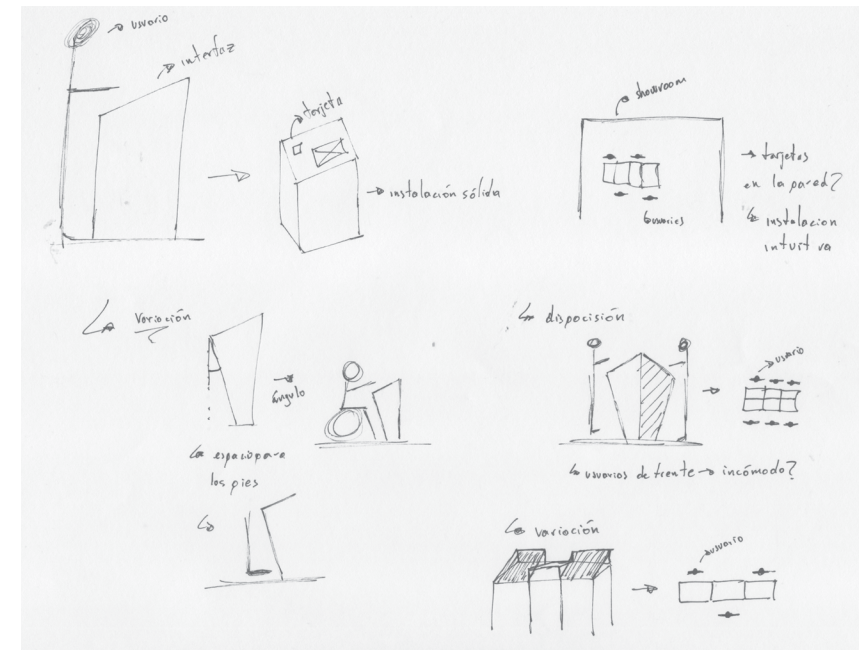 usuario
interfaz
tarjeta
instalación sólida
showroom
tarjetas
en la pared?
instalacion
intuitiva
usuarios
variación
ángulo
espacio para
los pies
dispocisión
usuario
usuarios de frente → incómodo?
variación
usuario